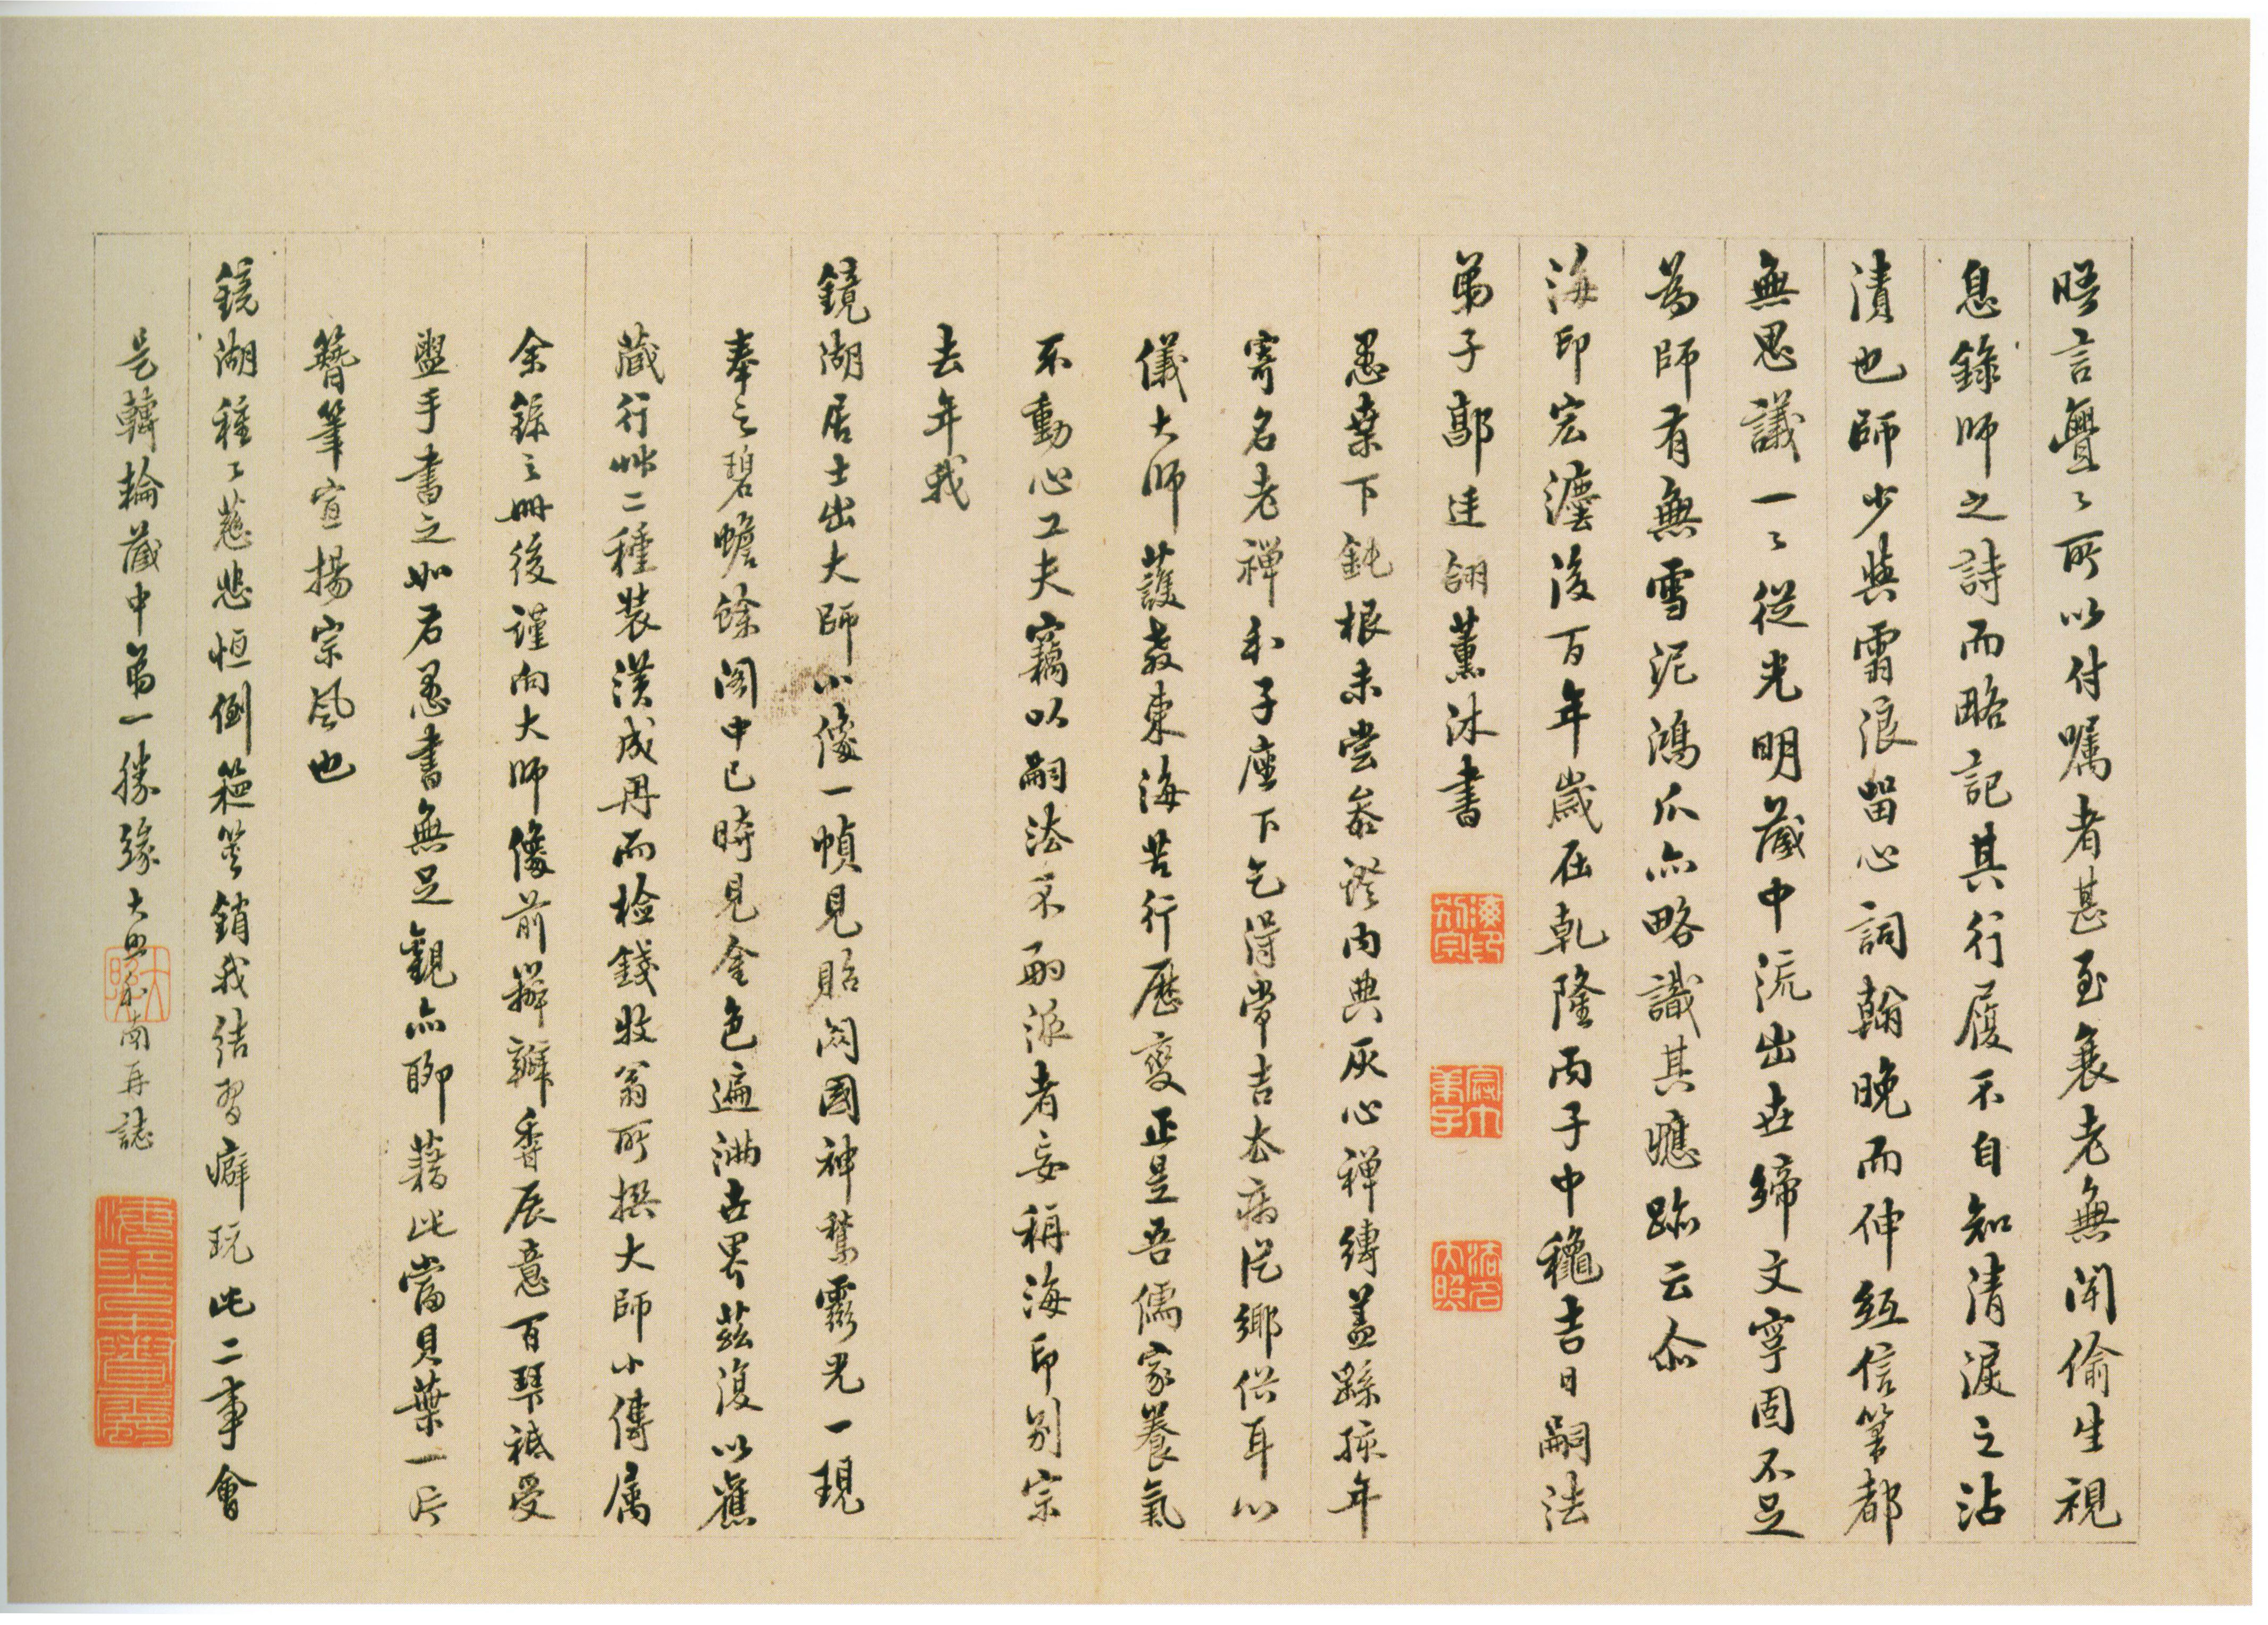 晤言亹〻所以付嘱者甚至衰老無聞偷生視
息錄師之詩而略記其行履不自知清淚之沾
漬也師少與霅浪留心詞翰晚而伸紙信筆都
無思議一〻從光明藏中流出世締文字固不足
為師有無雪泥鴻爪亦略識其應跡云尒
海印宏灋後百年歲在乾隆丙子中龝吉日嗣法
弟子鄣廷翎薰沐書
愚棄下鈍根未嘗叅證內典灰心禪縛蓋跡掠年
寄名老禪和子座下乞得常吉衣病從鄉俗耳以
儀大師護教東海苦行歷變正是吾儒家養氣
不動心工夫竊以嗣法不酌派者妄稱海印別宗
去年我
鏡湖居士出大師小像一幀見貽閟國神鰲靈光一現
奉之碧蟾餘閣中已時見金色遍滿世界茲復以舊
藏行艸二種裝潢成冊而檢錢牧翁所撰大師小傳属
余錄之冊後謹向大師像前辦瓣香展意百琴祗受
盥手書之如石愚書無足觀亦聊藉此當貝葉一片
簪筆宣揚宗風也
鏡湖種〻慈悲恒倒篋笑銷我結習癖玩此二事會
是轉輪藏中弟一勝緣大照和南再誌
法名
大照